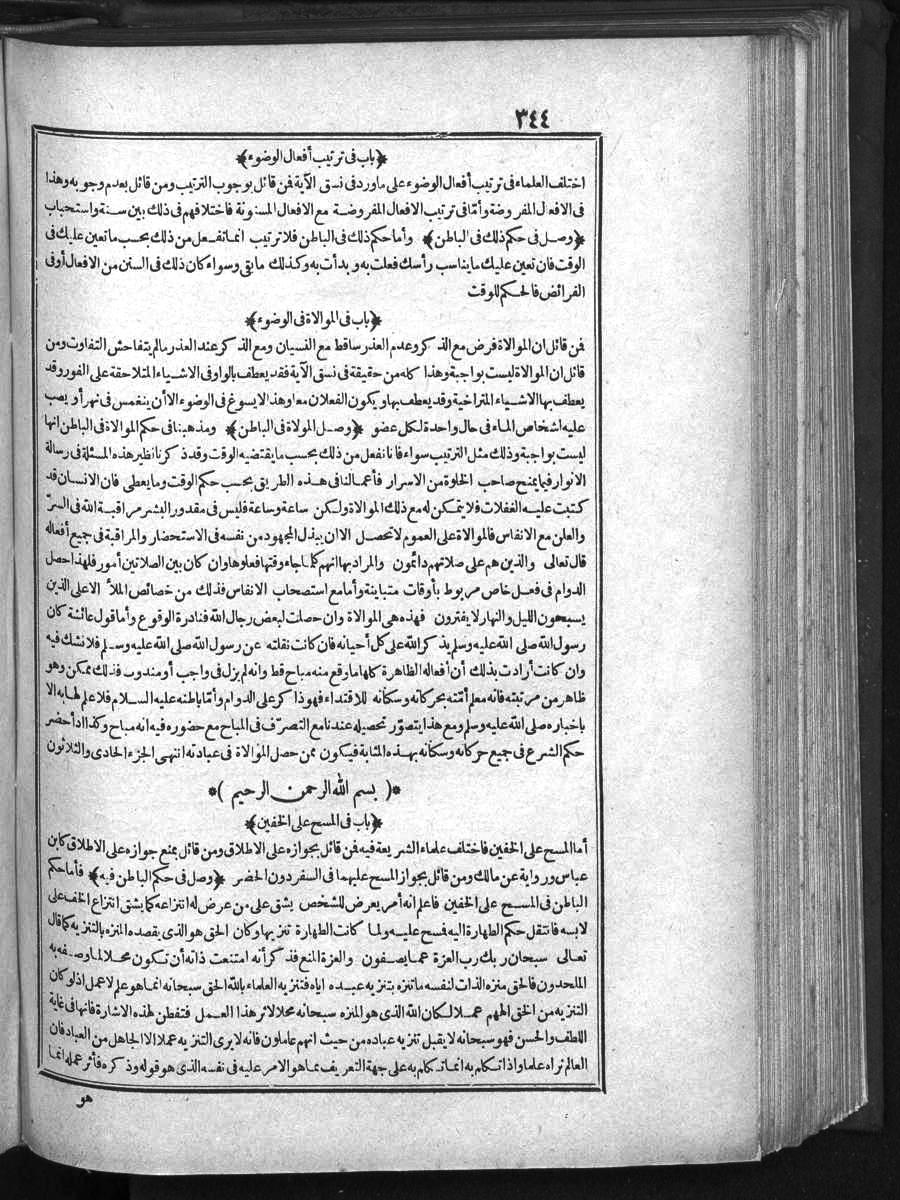 ٣٤٤
﴿باب فى ترتيب أفعال الوضوء﴾
اختلف العلماء فى ترتيب أفعال الوضوء على ماورد فى نسق الآية فمن قائل بوجوب الترتيب ومن قائل بعدم وجوبه وهذا
فى الافعال المفروضة وأمّا فى ترتيب الافعال المفروضة مع الافعال المسنونة فاختلافهم فى ذلك بين سنة واستحباب
﴿وصل فى حكم ذلك فى الباطن﴾ وأما حكم ذلك فى الباطن فلا ترتيب انما تفعل من ذلك بحسب ما تعين عليك فى
الوقت فان تعين عليك ما يناسب رأسك فعلت به وبدأت به وكذلك ما بقى وسواء كان ذلك فى السنن من الافعال أو فى
الفرائض فالحكم للوقت
﴿باب فى الموالاة فى الوضوء﴾
فمن قائل ان الموالاة فرض مع الذكر وعدم العذر ساقط مع النسيان ومع الذكر عند العذر مالم يتفاحش التفاوت ومن
قائل ان الموالاة ليست بواجبة وهذا كله من حقيقة فى نسق الآية فقد يعطف بالواو فى الاشياء المتلاحقة على الفور وقد
يعطف بها الاشياء المتراخية وقد يعطف بها ويكون الفعلان معا وهذا لا يسوغ فى الوضوء الا أن ينغمس فى نهر أو يصب
عليه اشخاص الماء فى حال واحدة لكل عضو ﴿وصل المولاة فى الباطن﴾ ومذهبنا فى حكم الموالاة فى الباطن انها
ليست بواجبة وذلك مثل الترتيب سواء فانا نفعل من ذلك بحسب ما يقتضيه الوقت وقد ذكرنا نظير هذه المسئلة فى رسالة
الانوار فيما يمنح صاحب الخلوة من الاسرار فأعمالنا فى هذه الطريق بحسب حكم الوقت وما يعطى فان الانسان قد
كتبت عليه الغفلات فلا يتمكن له مع ذلك الموالاة ولكن ساعة وساعة فليس فى مقدور البشر مراقبة الله فى السرّ
والعلن مع الانفاس فالموالاة على العموم لا تحصل الا ان يبذل المجهود من نفسه فى الاستحضار والمراقبة فى جميع أفعاله
قال تعالى والذين هم على صلاتهم دائمون والمراد بها انهم كلما جاء وقتها فعلوها وان كان بين الصلاتين أمور فلهذا حصل
الدوام فى فعل خاص مربوط بأوقات متباينة وأما مع استصحاب الانفاس فذلك من خصائص الملأ الاعلى الذين
يسبحون الليل والنهار لا يفترون فهذه هى الموالاة وان حصلت لبعض رجال الله فنادرة الوقوع وأما قول عائشة كان
رسول الله صلى الله عليه وسلم يذكر الله على كل أحيانه فان كانت نقلته عن رسول الله صلى الله عليه وسلم فلا نشك فيه
وان كانت أرادت بذلك أن أفعاله الظاهرة كلها ما وقع منه مباح قط وانه لم يزل فى واجب أو مندوب فذلك ممكن وهو
ظاهر من مرتبته فانه معلم أمّته بحركاته وسكناته للاقتداء فهو ذاكر على الدوام وأمّا باطنه عليه السلام فلا علم لها به الا
باخباره صلى الله عليه وسلم ومع هذا يتصوّر تحصيله عندنا مع التصرّف فى المباح مع حضوره فيه انه مباح وكذا اذا حضر
حكم الشرع فى جميع حركاته وسكناته بهذه المثابة فيكون ممن حصل الموالاة فى عبادته انتهى الجزء الحادى والثلاثون
*( بسم الله الرحمن الرحيم )*
﴿باب فى المسح على الخفين﴾
أما المسح على الخفين فاختلف علماء الشريعة فيه فمن قائل بجوازه على الاطلاق ومن قائل بمنع جوازه على الاطلاق كابن
عباس ورواية عن مالك ومن قائل بجواز المسح عليهما فى السفر دون الحضر ﴿وصل فى حكم الباطن فيه﴾ فأما حكم
الباطن فى المسح على الخفين فاعلم انه أمر يعرض للشخص يشق على من عرض له انتزاعه كما يشق انتزاع الخف على
لابسه فانتقل حكم الطهارة اليه فمسح عليه ولما كانت الطهارة تنزيها وكان الحق هو الذى يقصده المنزه بالتنزيه كما قال
تعالى سبحان ربك رب العزة عما يصفون والعزة المنع فذكر أنه امتنعت ذاته أن تكون محلا لما وصفه به
الملحدون فالحق منزه الذات لنفسه ما تنزه بتنزيه عبده اياه فتنزيه العلماء بالله الحق سبحانه انما هو علم لا عمل اذ لو كان
التنزيه من الخلق الههم عملا لكان الله الذى هو المنزه سبحانه محلا لاثر هذا العمل فتفطن لهذه الاشارة فانها فى غاية
اللطف والحسن فهو سبحانه لا يقبل تنزيه عباده من حيث انهم عاملون فانه لا يرى التنزيه عملا الا الجاهل من العباد فان
العالم تراه علما واذا تكلم به انما تكلم به على جهة التعريف بما هو الامر عليه فى نفسه الذى هو قوله وذكره فأثر عمله انما
هو